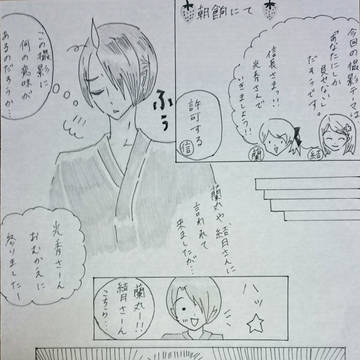 朝餉にて
今回の撮影テーマは
あなたにしか
だそうです。
信長さまっ!!
光秀さんで
いきましょう!!
結
蘭
許可する
信
蘭丸や、結月さんに
言われて
来ましたが…
ふぅ
この撮影に
何の意味が
あるのだろうか…
光秀さーん
おむかえに
参りましたー
ハッ
蘭丸ー!!
結月さーん